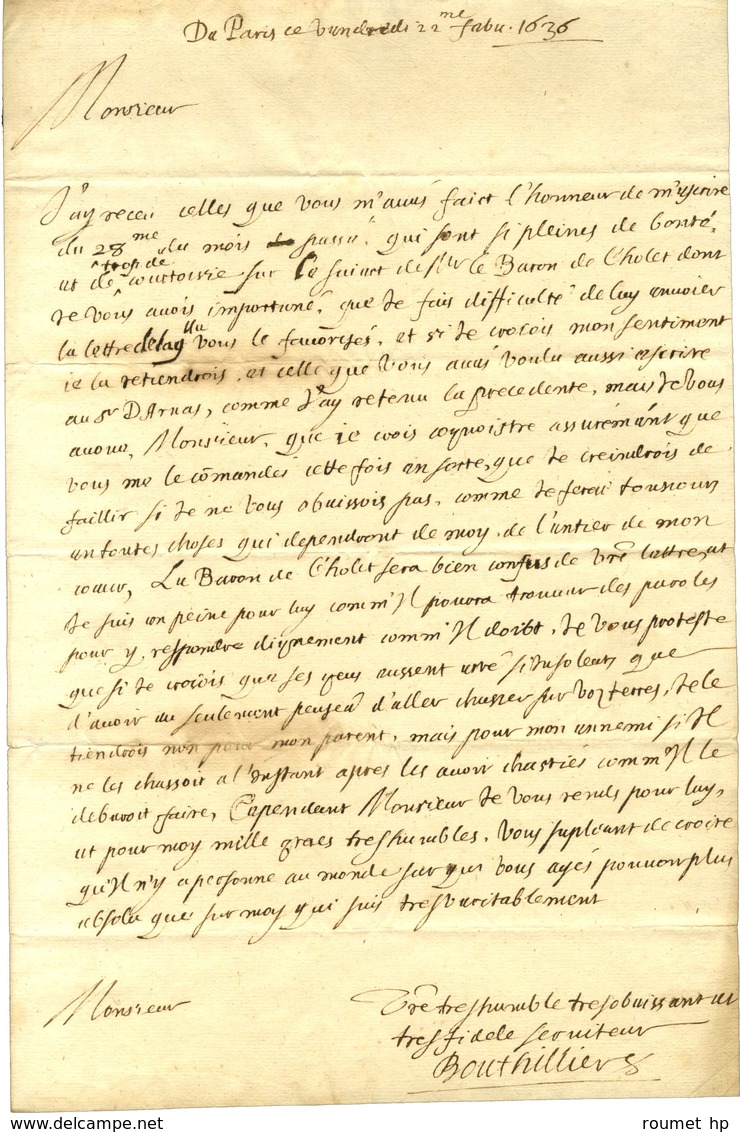 De Paris ce Vendredi 22me febv. 1636
Monsieur
J'ay receu celles que vous m'avés faict l'honneur de m'escrire
du 28me du mois passé, qui sont si pleines de bonté,
trop de
et de courtoisie sur le suiect de Mr le Baron de Cholet dont
Je vous avois importuné, que Je fais difficulté de luy envoier
la lettre vous le favorisés, et si Je croiois mon sentiment
ie la retiendrois, et celle que vous avés voulu aussi escrire
au Sr D'Arnas, comme J'ay retenu la precedente, mais Je vous
avoue, Monsieur, que ie crois cognoistre assurément que
vous me le comandés cette fois en sorte, que Je creindrois de
faillir si Je ne vous obeissois pas, comme Je feray tousiours
en toutes choses qui dependront de moy, de l'entier de mon
coeur, Le Baron de Cholet sera bien confus de vre lettre, et
Je suis en peine pour luy comm'Il pourra trouver des paroles
pour y respondre dignement comm'Il doibt, Je vous proteste
que si Je croiois que ses gens eussent esté si insolents que
d'avoir eu seulement pensé d'aller chasser sur voz terres, Je le
tiendrois non pour mon parent, mais pour mon ennemi si Il
ne les chassoit a l'instant apres les avoir chastiés comm'Il le
debvroit faire, Cependant Monsieur Je vous rends pour luy,
et pour moy mille graces treshumbles, vous supliant de croire
qu'Il n'y a personne au monde sur qui vous ayés pouvoir plus
absolu que sur moy qui suis tresveritablement
Monsieur
Vre treshumble tresobeissant et
tresfidele serviteur
Bouthillier
roumet hp